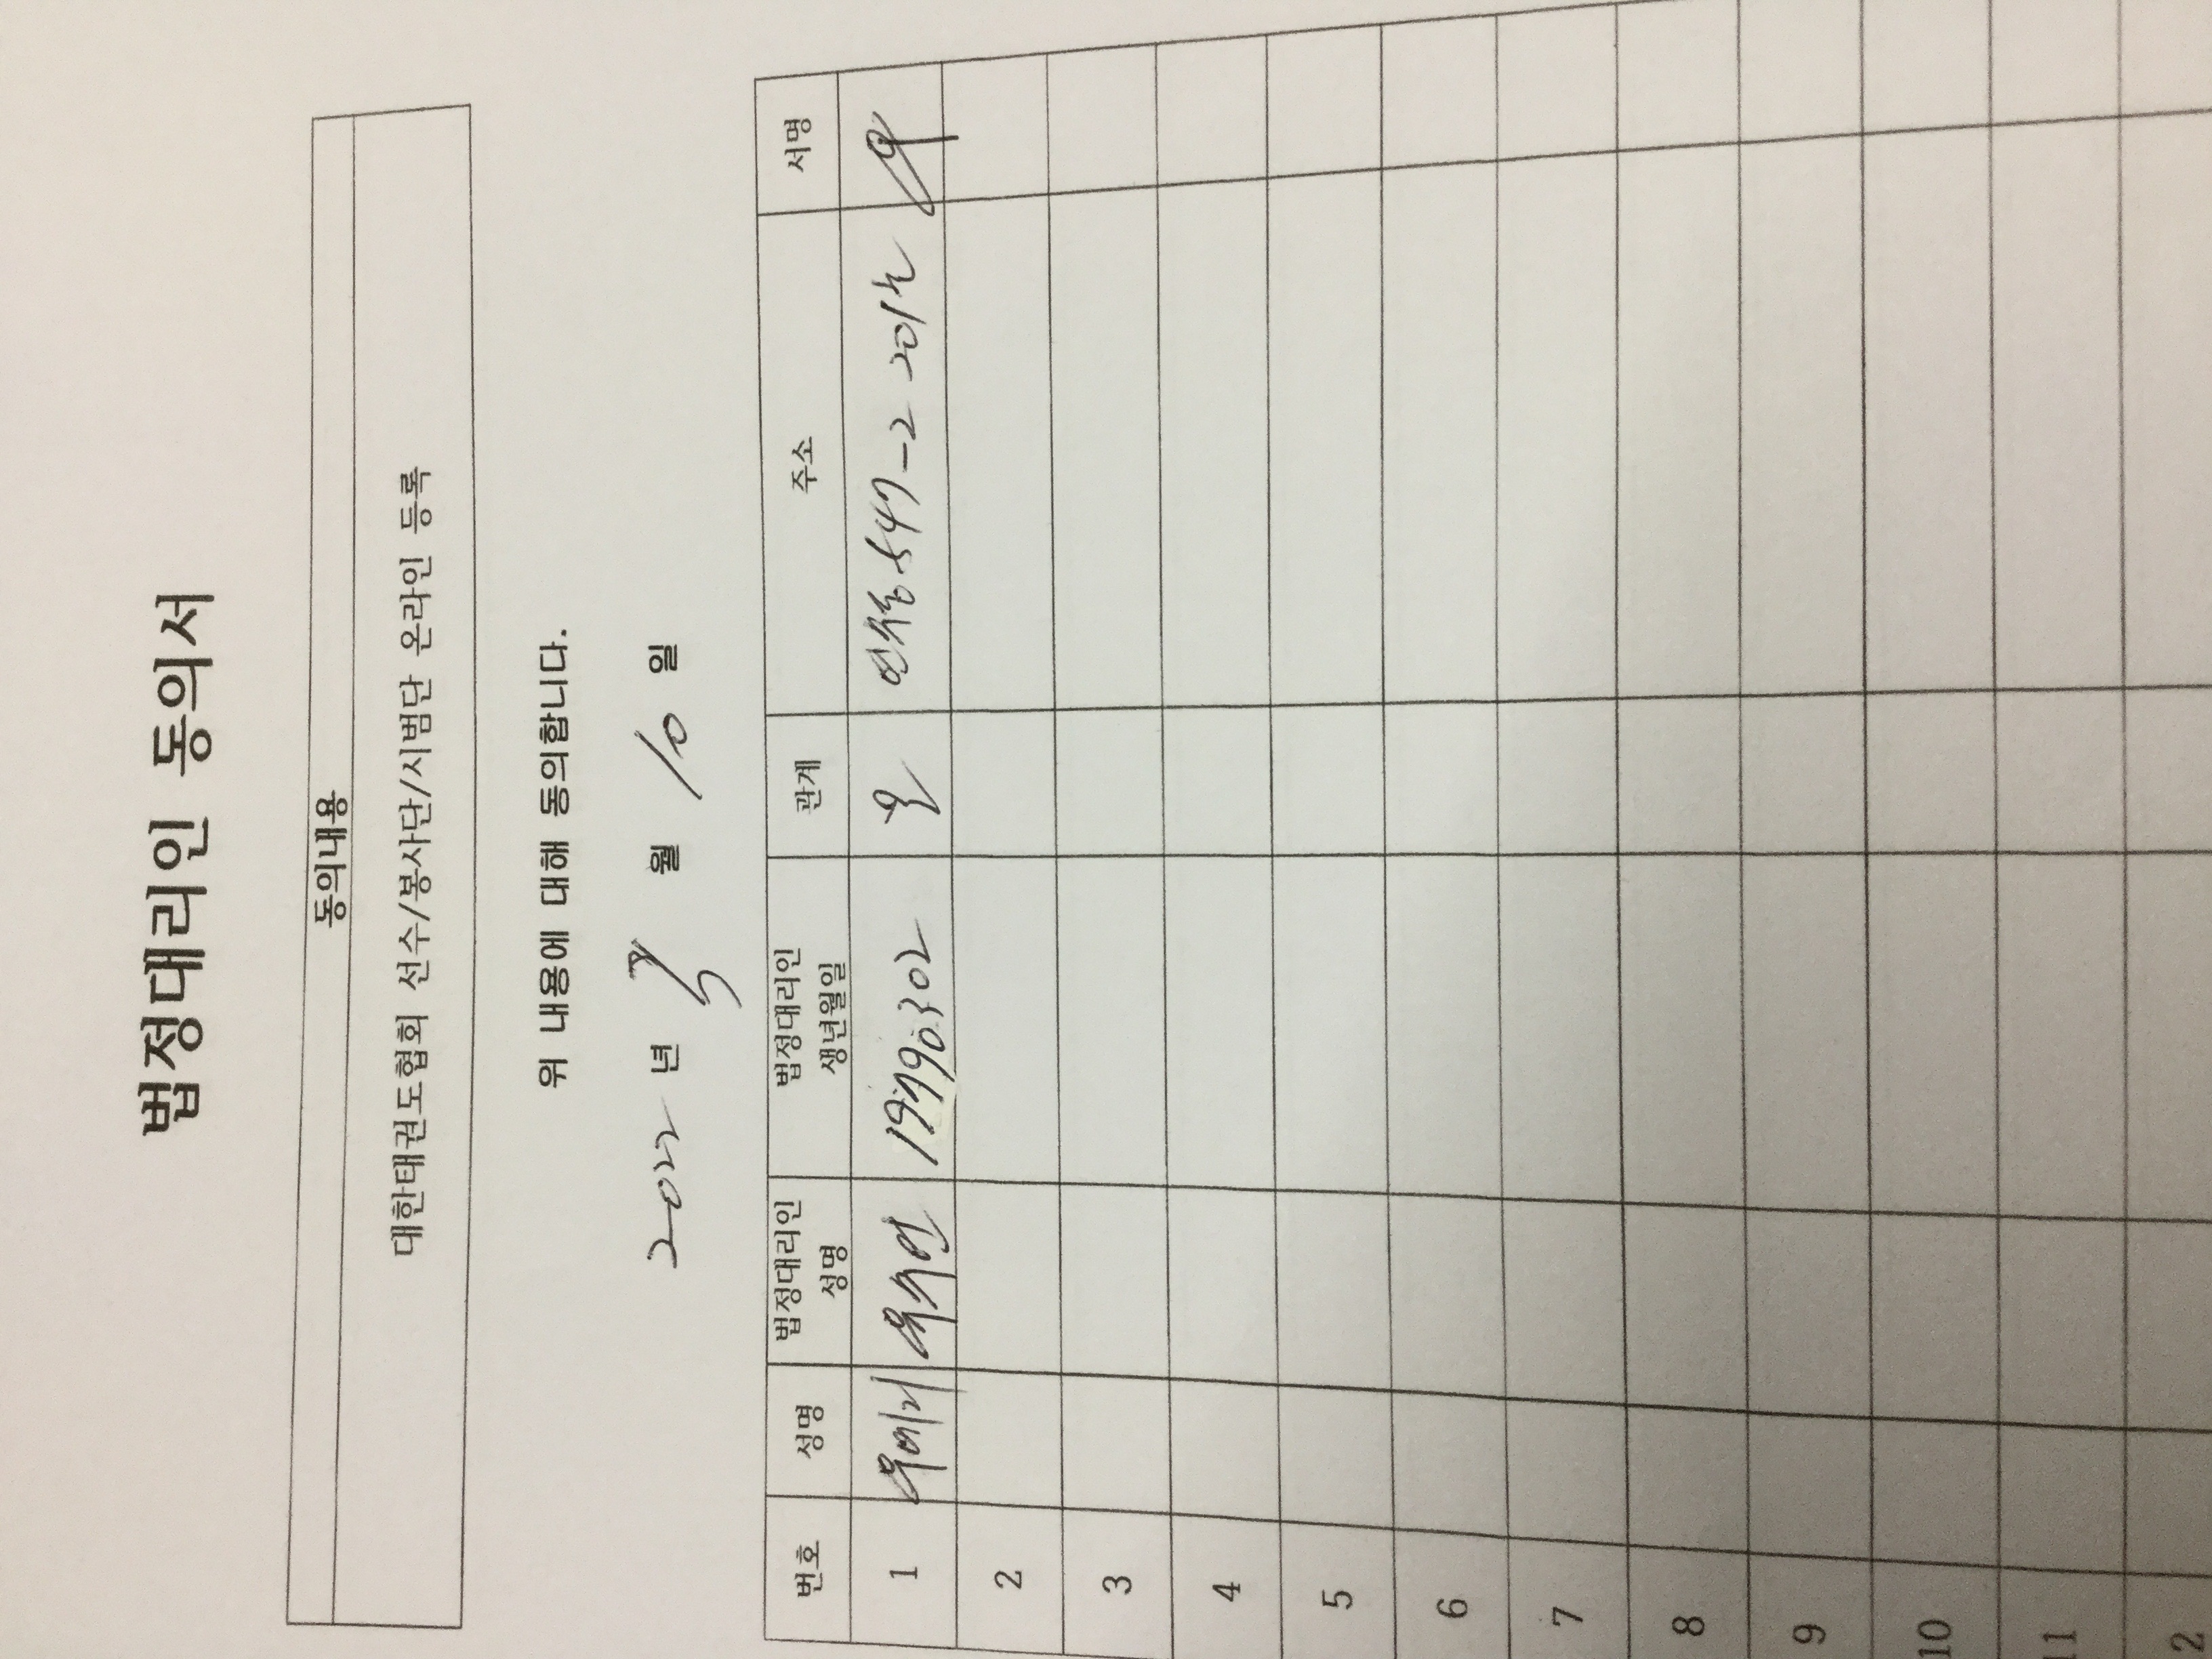 법정대리인 동의서
동의내용
대한태권도협회 선수/봉사단/시범단 온라인 등록
위 내용에 대해 동의합니다.
2022 년 월 10 일
번호 성명 법정대리인 성명 법정대리인 생년월일 관계 주소 서명
1 19790302 547-2 201호
2
3
4
5
6
7
8
9
10
11
2